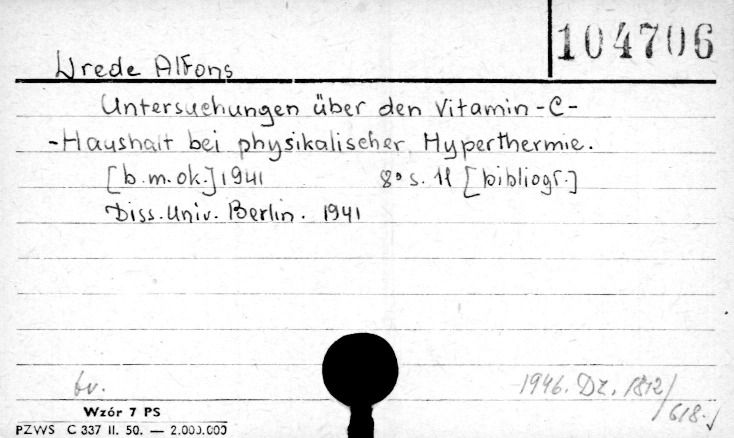 104706
Wrede Alfons
Untersuchungen über den Vitamin-C-
-Haushalt bei physikalischer Hyperthermie.
[b.m.ok.] 1941 8° s. 11 [bibliogr.]
Diss. Univ. Berlin. 1941
br. 1946. Dz. 1812/
618.
Wzór 7 PS
PZWS C 337 II. 50. — 2.000.000